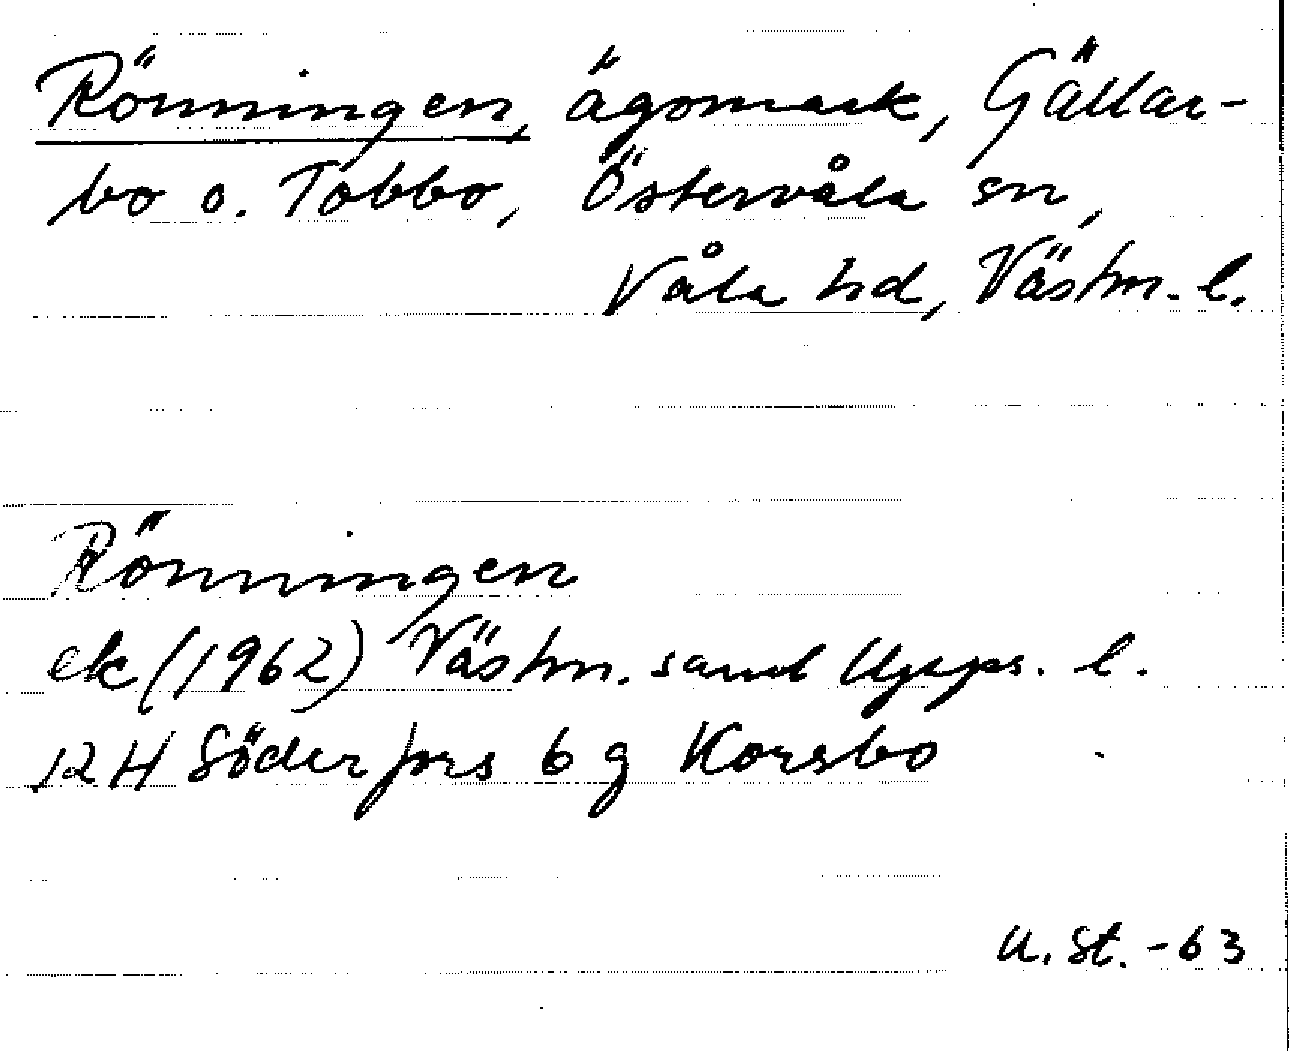 Rönningen, ägomark, Gällar-
bo o. Tobbo, Östervåla sn,
Våla hd, Västm. l.
Rönningen
ek (1962) Västm. samt Upps. l.
12 H Söderfors 6 g Korsbo
U. St. -63